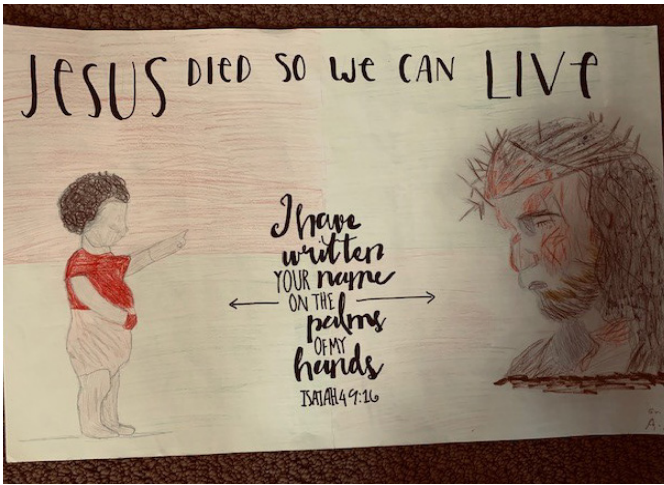 JESUS DIED SO WE CAN LIVE
I have
written
YOUR name
ON THE
palms
OF MY
hands
ISAIAH 49:16